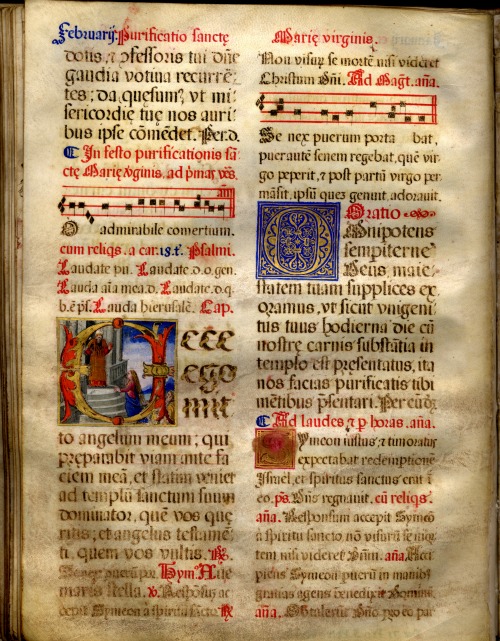 Februarij. Purificatio sanctę
donis, & ↄfessoris tui dñe
gaudia votiua recurrē
tes; da quęsum⁹, vt mi
sericordię tuę nos auri
bus ipse cōmēdet. Per. d.
In festo purificationis sā
ctę Marię v̄ginis. ad p̄mas vr̄s.
O admirabile comertium.
cum reliqs. a car. 18. t. Psalmi.
Laudate pū. Laudate. d. o. gen.
Lauda aīa mea. d. Laudate. d. q.
b. ē ps̄. Lauda hierusalē. Cap.
Ecce
ego
mit
to angelum meum; qui
pręparabit viam ante fa
ciem meā, et statim veniet
ad templū sanctum suum
dominator, quē vos quę
ritis; et angelus testamē
ti, quem vos vultis. R.
Senex puerū por. Hym. Aue
maris stella. v. Respōsū ac
cepit Symeon a spiritu scto. R
Marię virginis.
Non visur⁹ se mortē nisi videret
Christum Dn̄i. Ad Mag̃t. añā.
Se nex puerum porta bat,
puer autē senem regebat, quē vir
go peperit, & post partū virgo per
māsit, ipsū quez genuit, adorauit.
Oratio
Omnipotens
sempiternę
Deus, maie
statem tuam supplices ex
oramus, vt sicut vnigeni
tus tuus hodierna die cū
nostrę carnis substātia in
templo est pręsentatus, ita
nos facias purificatis tibi
mētibus pr̄sentari. Per eūdȝ
Ad laudes & p horas. añā.
Symeon iustus, & timoratus
expectabat redemptionē
Israel, et spiritus sanctus erat ī
eo. ps. Dn̄s regnauit. cū reliqs.
añā. Responsum accepit Symeō
a spiritu sancto, nō visurū se mor
tem nisi videret Dn̄m. añā. Acci
piens Symeon puerū in manib⁹
gratias agens benedixit Domini.
añā. Obtulerūt Dn̄o pro eo par